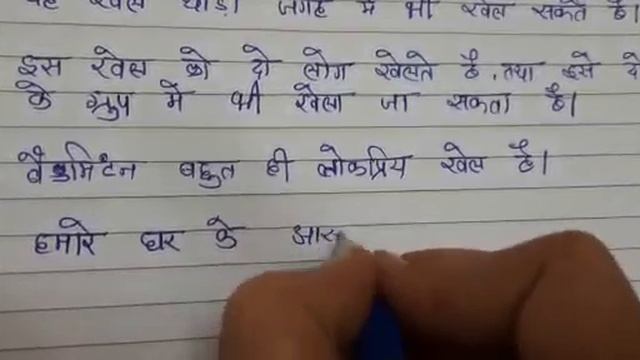 यह खेल थोड़ी जगह में भी खेल सकते है।
इस खेल को दो लोग खेलते है, तथा इसे दो
के ग्रुप में भी खेला जा सकता है।
बैडमिंटन बहुत ही लोकप्रिय खेल है।
हमारे घर के आस